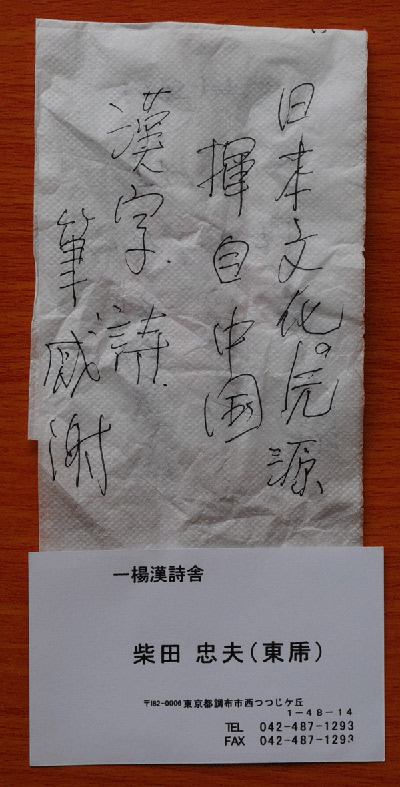 日本文化的元源
揮自中国
漢字.詩.
筆感謝
一楊漢詩舎
柴田 忠夫(東乕)
〒182-0006 東京都調布市西つつじケ丘
1-48-14
TEL 042-487-1293
FAX 042-487-1293